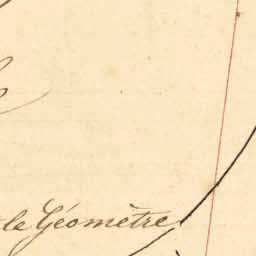 le Géomètre